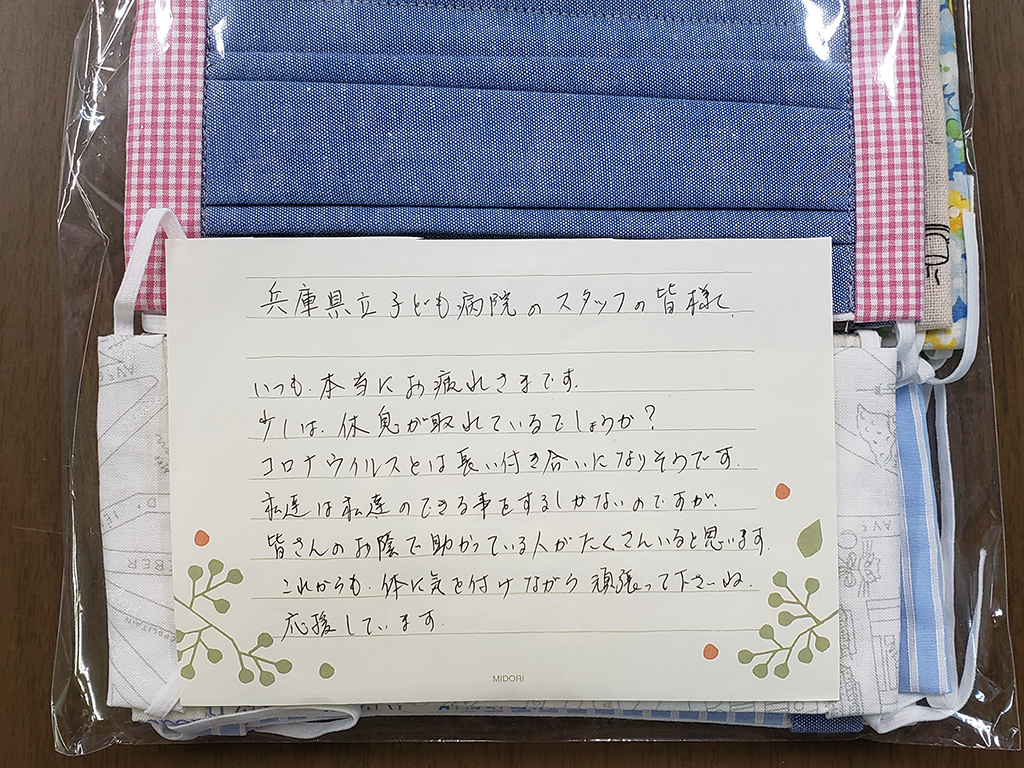 兵庫県立子ども病院のスタッフの皆様へ
いつも、本当にお疲れさまです。
少しは、休息が取れているでしょうか？
コロナウイルスとは長い付き合いになりそうです。
私達は私達のできる事をするしかないのですが、
皆さんのお陰で助かっている人がたくさんいると思います。
これからも、体に気を付けながら頑張って下さいね。
応援しています。
MIDORI